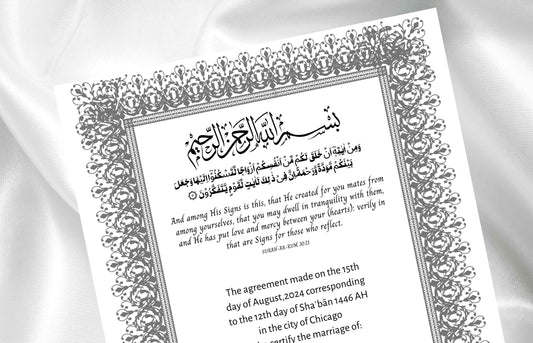 بسم الله الرحمن الرحيم
وَمِنْ آيَاتِهِ أَنْ خَلَقَ لَكُمْ مِّنْ أَنْفُسِكُمْ أَزْوَاجًا لِّتَسْكُنُوا إِلَيْهَا وَجَعَلَ
بَيْنَكُمْ مَّوَدَّةً وَّرَحْمَةً إِنَّ فِي ذَلِكَ لَآيَاتٍ لِّقَوْمٍ يَّتَفَكَّرُونَ
And among His Signs is this, that He created for you mates from
among yourselves, that you may dwell in tranquility with them,
and He has put love and mercy between your (hearts): verily in
that are Signs for those who reflect.
SURAH AR-RUM 30:21
The agreement made on the 15th
day of August,2024 corresponding
to the 12th day of Shaʿbān 1446 AH
in the city of Chicago
certify the marriage of: